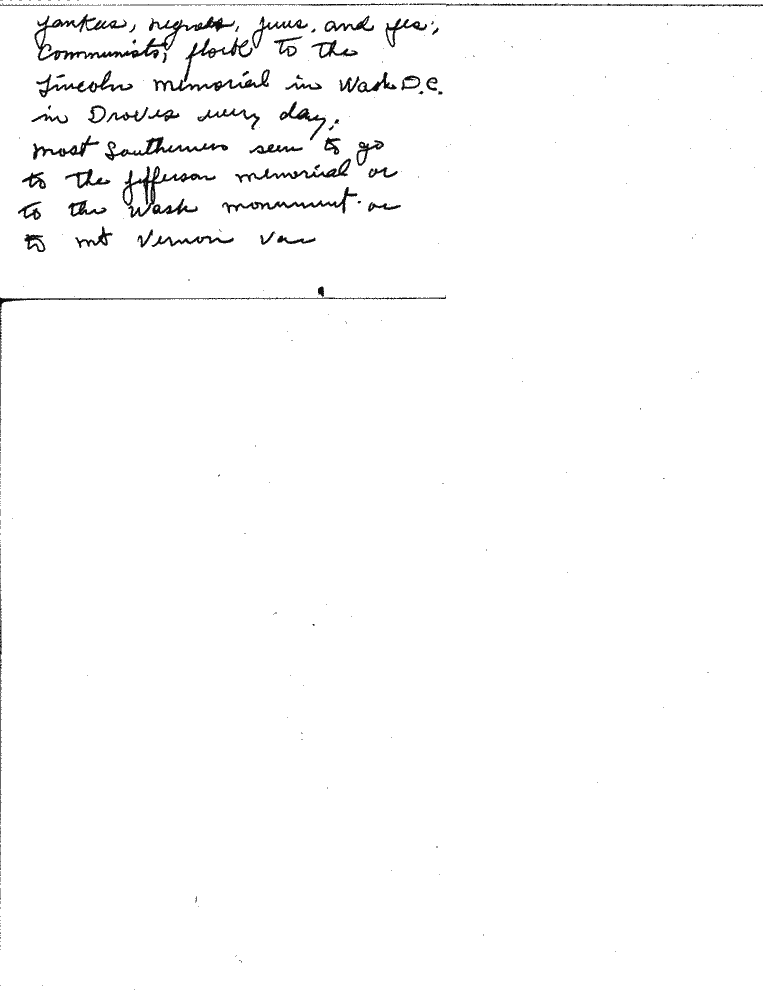 Yankees, negroes, jews, and yes,
Communists, flock to the
Lincoln memorial in Wash D.C.
in Droves every day,
most Southerners seem to go
to the Jefferson memorial or
to the Wash monument or
to mt Vernon Va